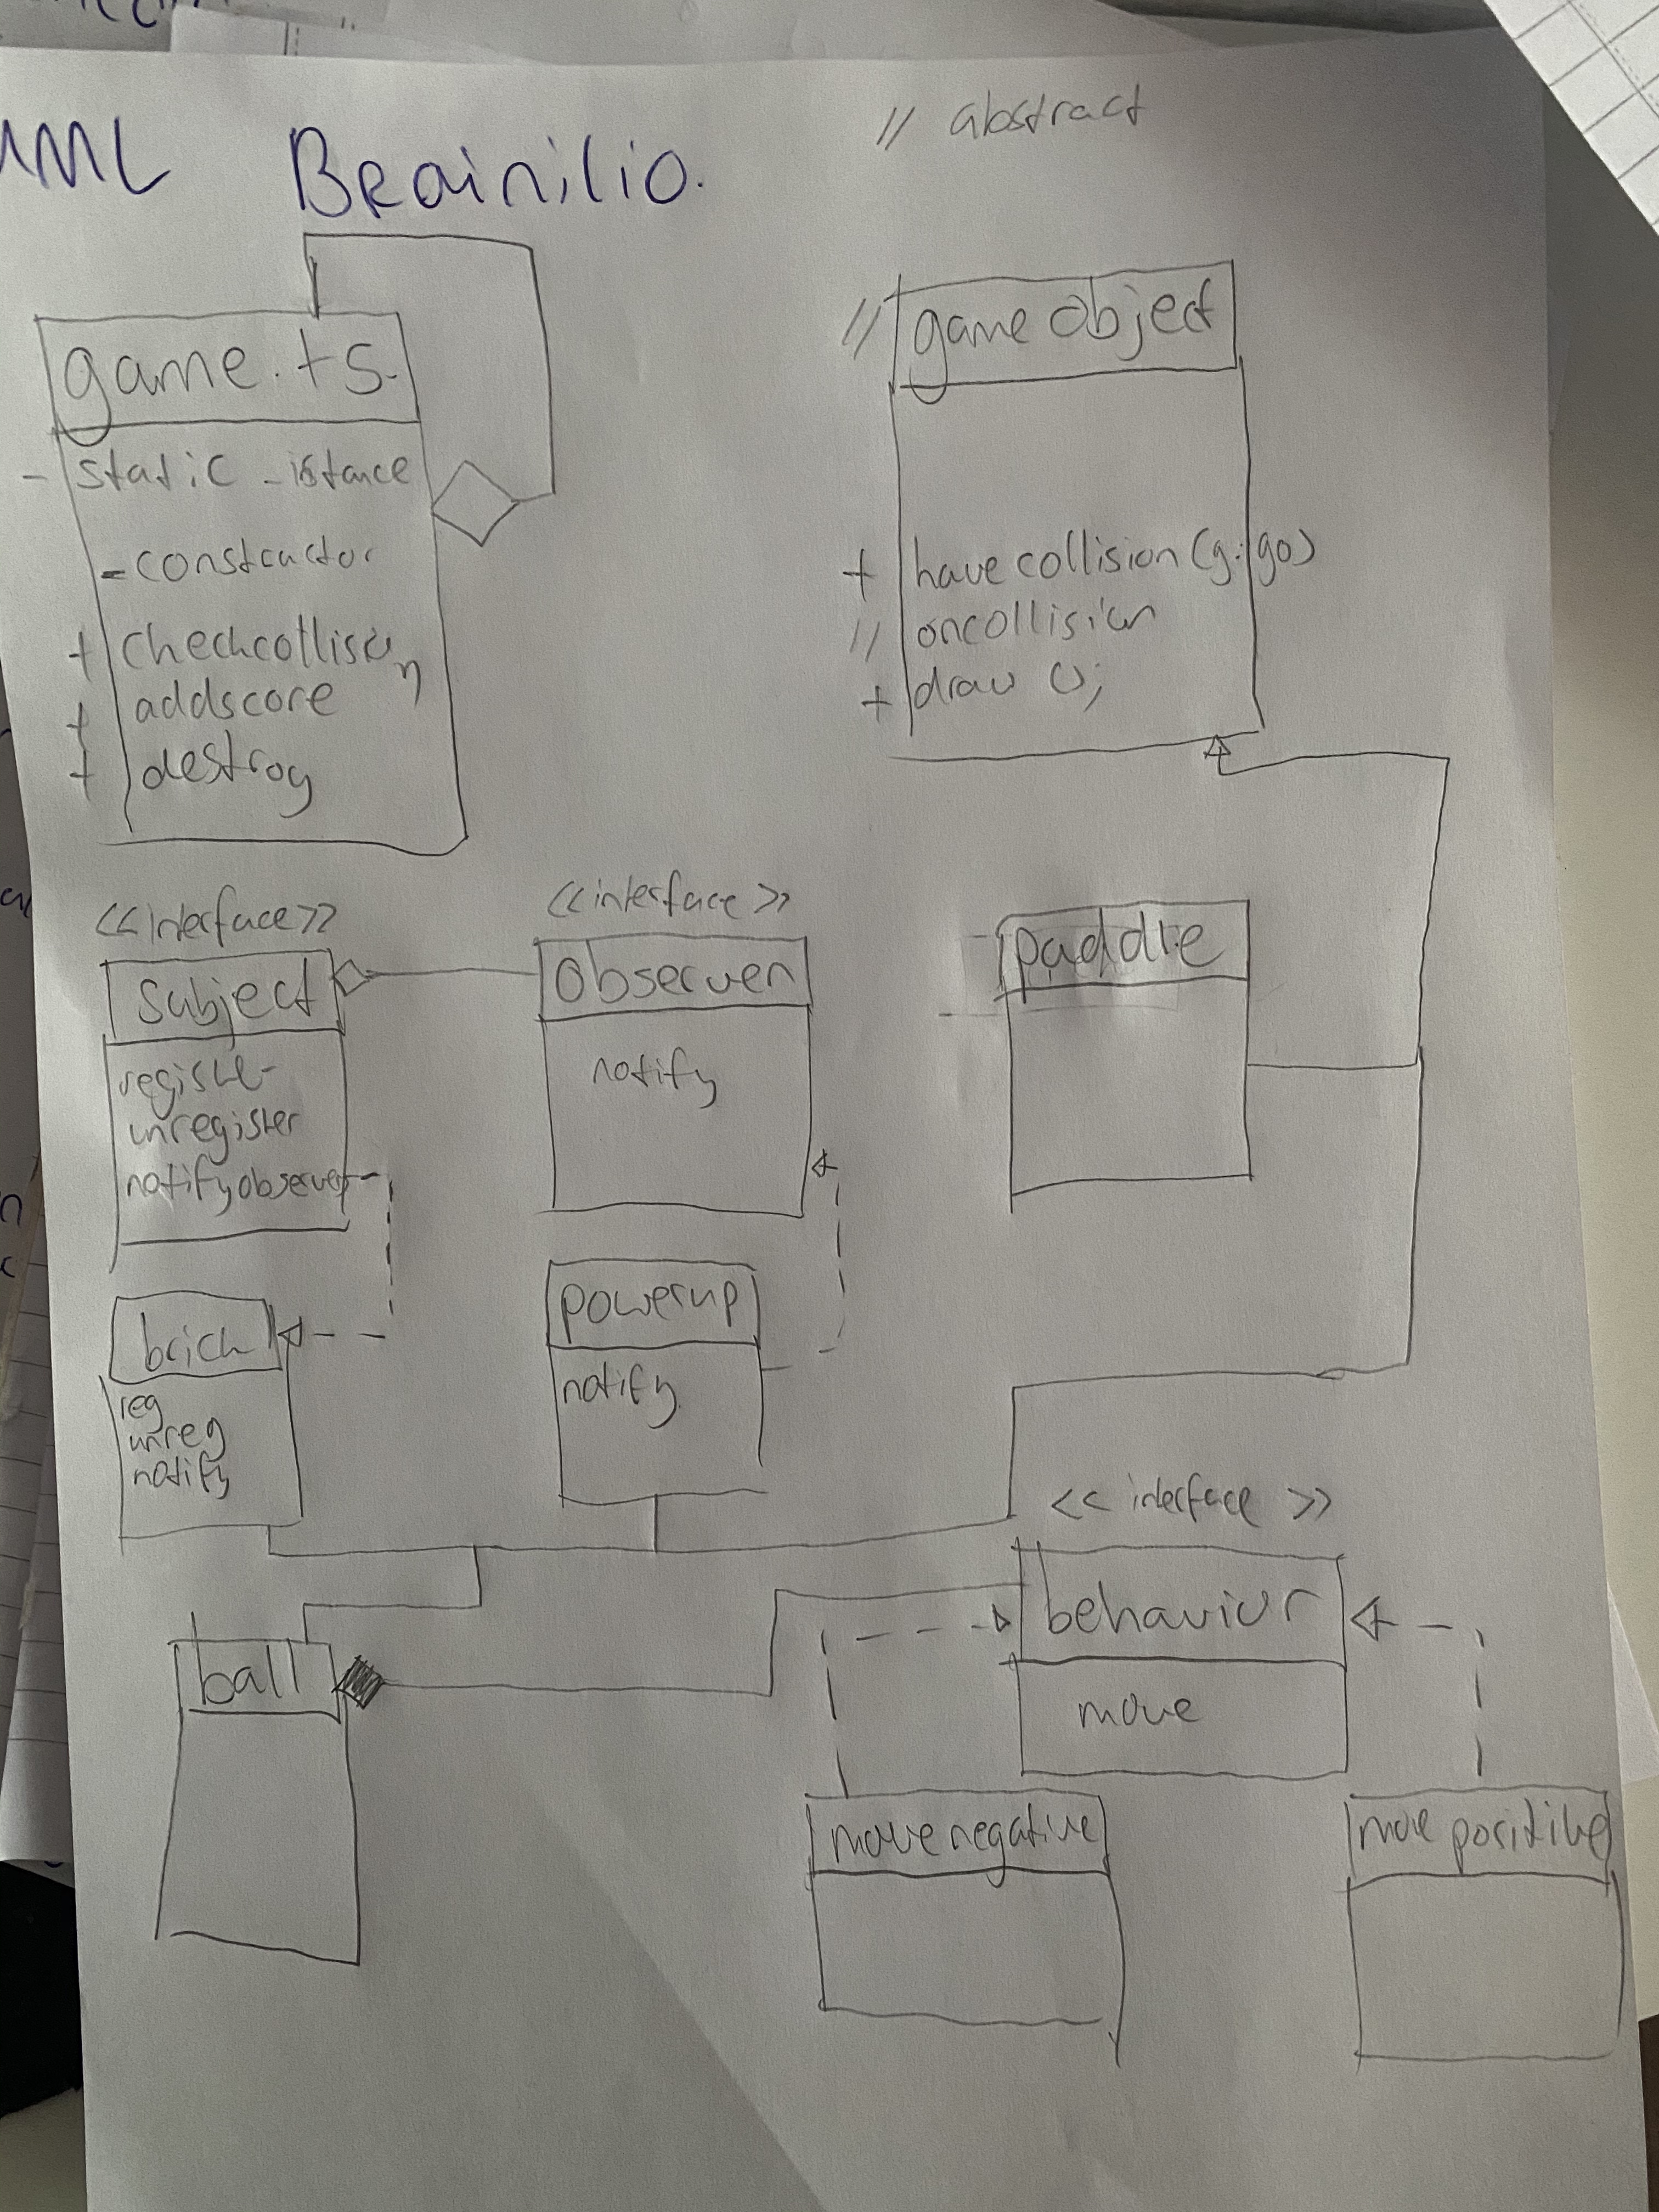 UML Brainilio.
// abstract
game.ts.
- static _istance
- constructor
+ checkcollision
+ addscore
+ destroy
// game object
+ have collision (g: go)
// oncollision
+ draw ();
<<interface>>
subject
register
unregister
notifyobserver
<<interface>>
observer
notify
paddle
brick
reg
unreg
notify
powerup
notify
ball
<< interface >>
behaviour
move
movenegative
move positive